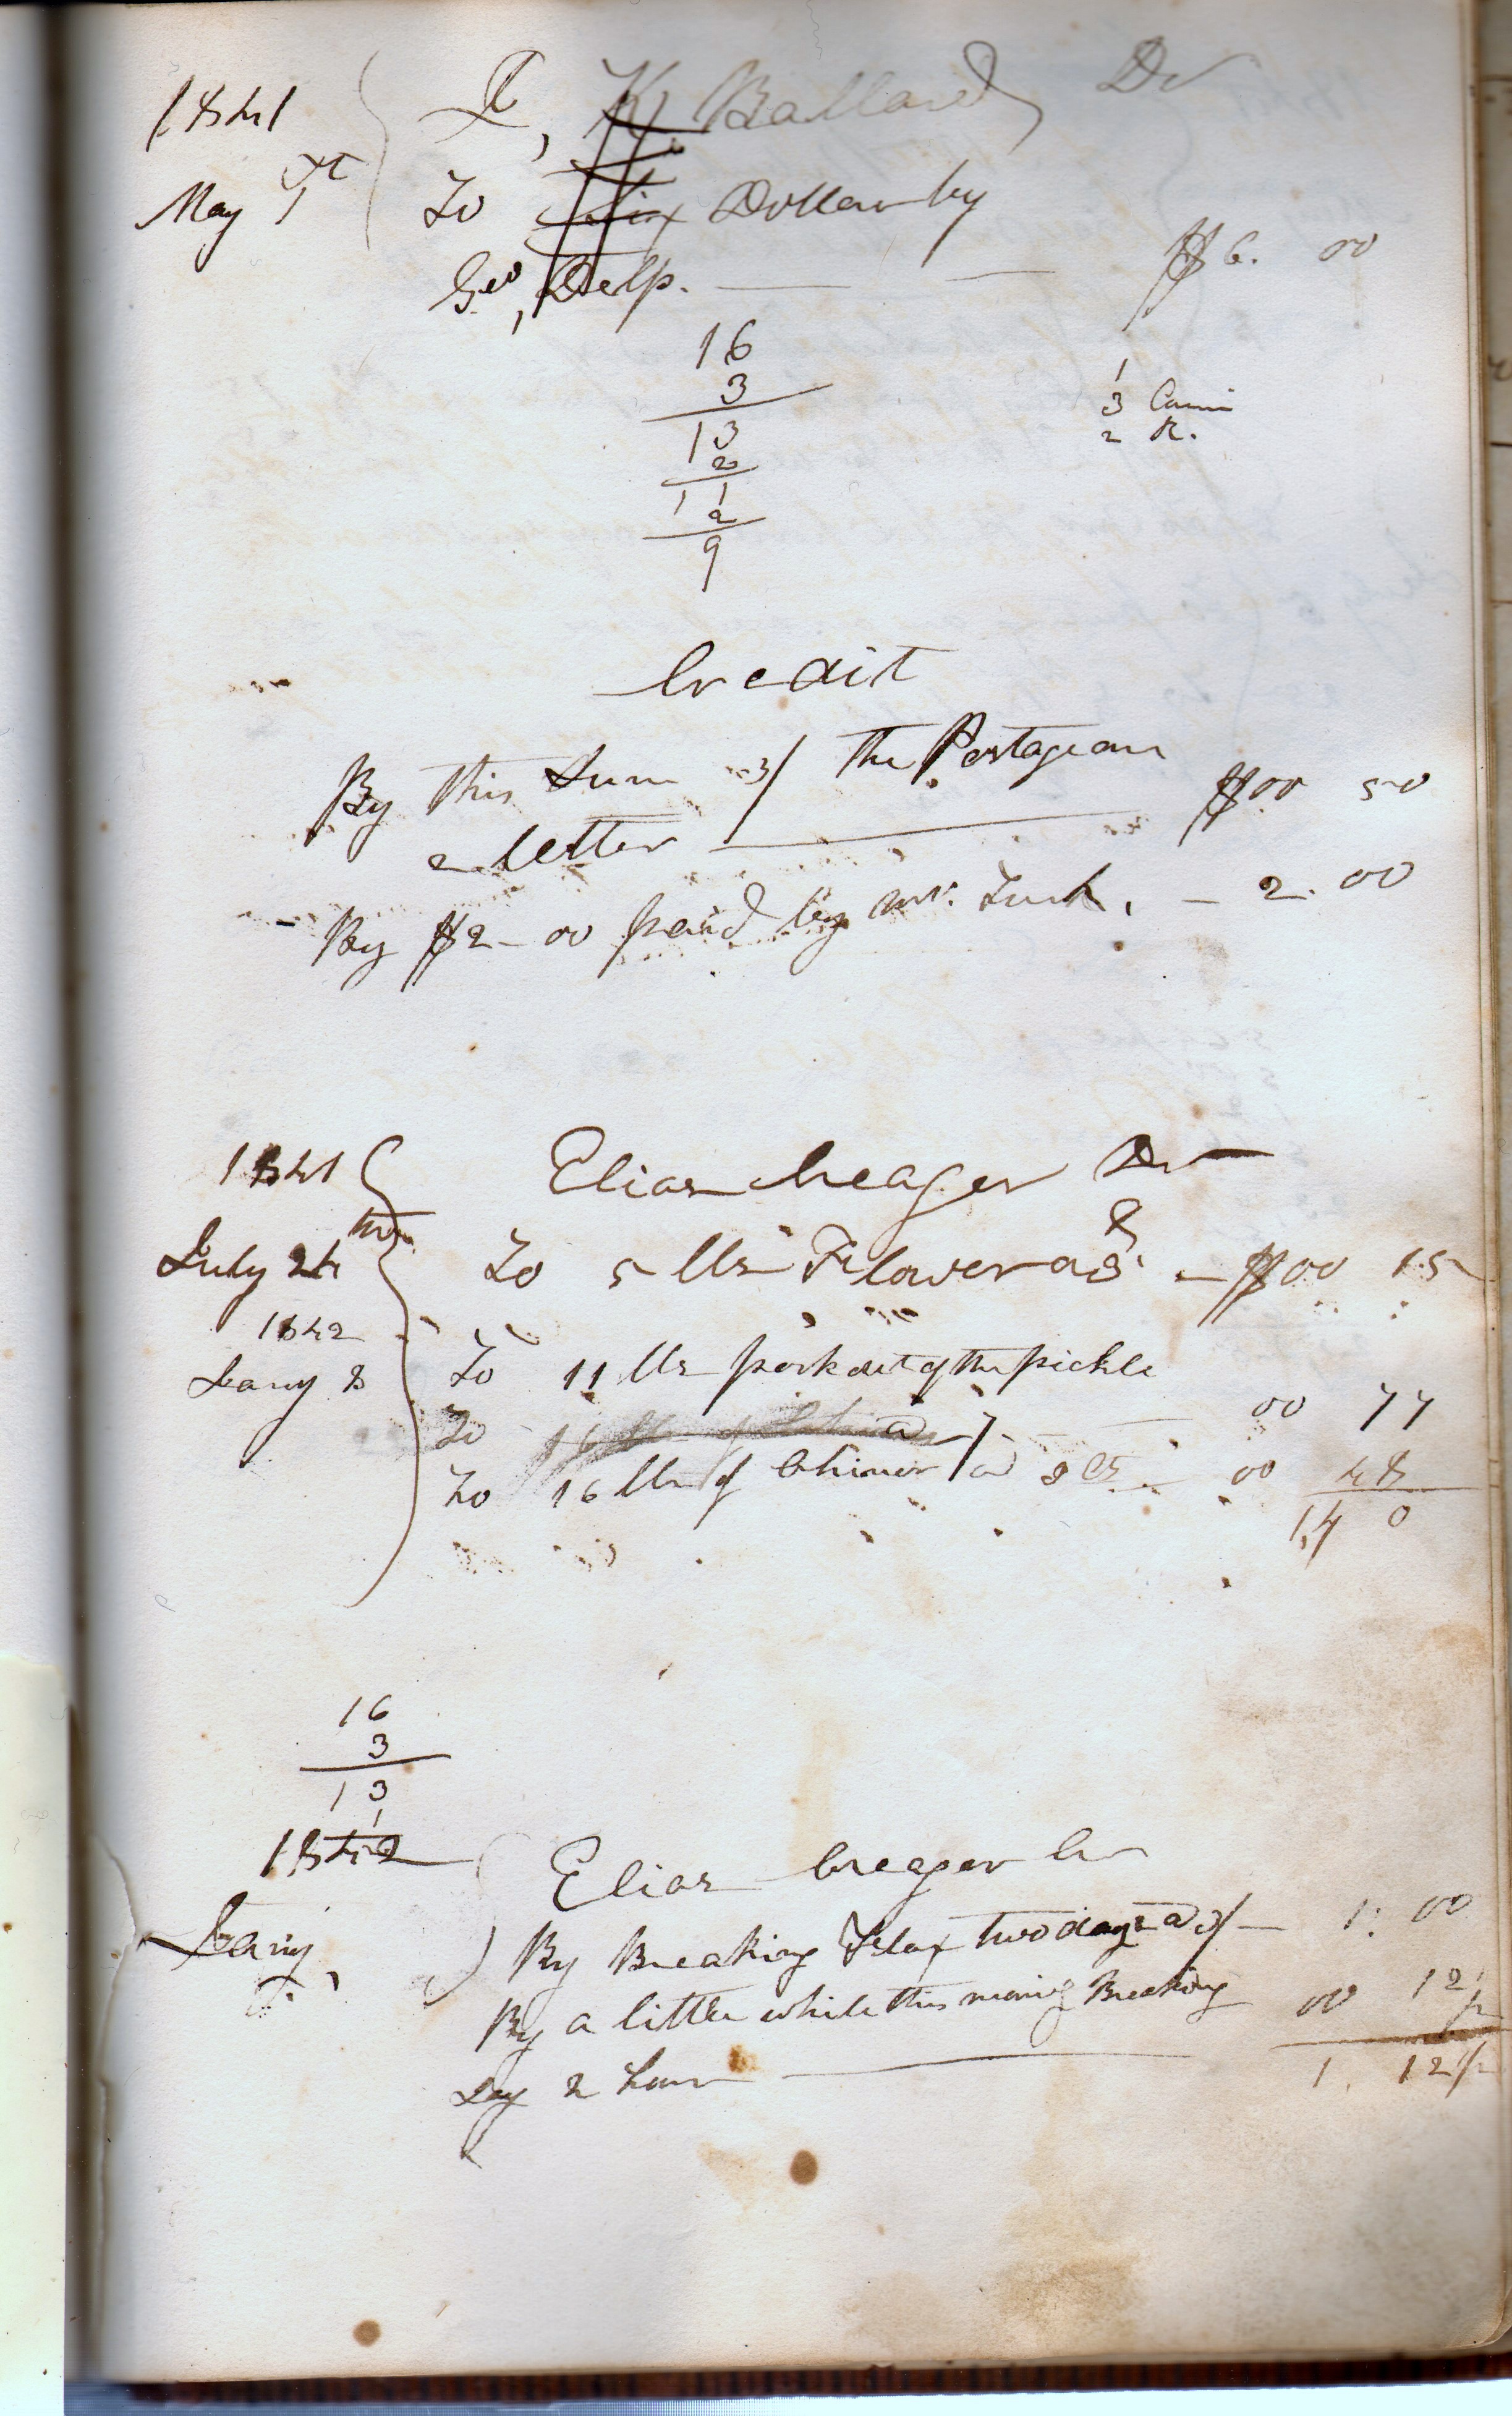 1841
K. Ballard Dr
May 1st To Six Dollars by
Geo, Delp. $6. 00
16
3
13
2
11
2
9
1
3
2 R.
Credit
By this Sum 3/ The Postage on
a letter $00 50
By $2-00 paid by Mr. Turk, - 2.00
1841 Elias Creager Dr
July 24th To 5 lbs Flower a 3 - $00 15
1842
Jany 8 To 11 lbs pork out of the pickle
00 77
To 16 lbs of a
To 16 lbs of Chines a 3 cts 00 48
1,40
16
3
13
1
1842 Elias Creager Cr
Jany By Breaking Flax two days a 3/ - 1: 00
By a little while this morning Breaking 00 12 1/2
Say 2 hours
1. 12 1/2